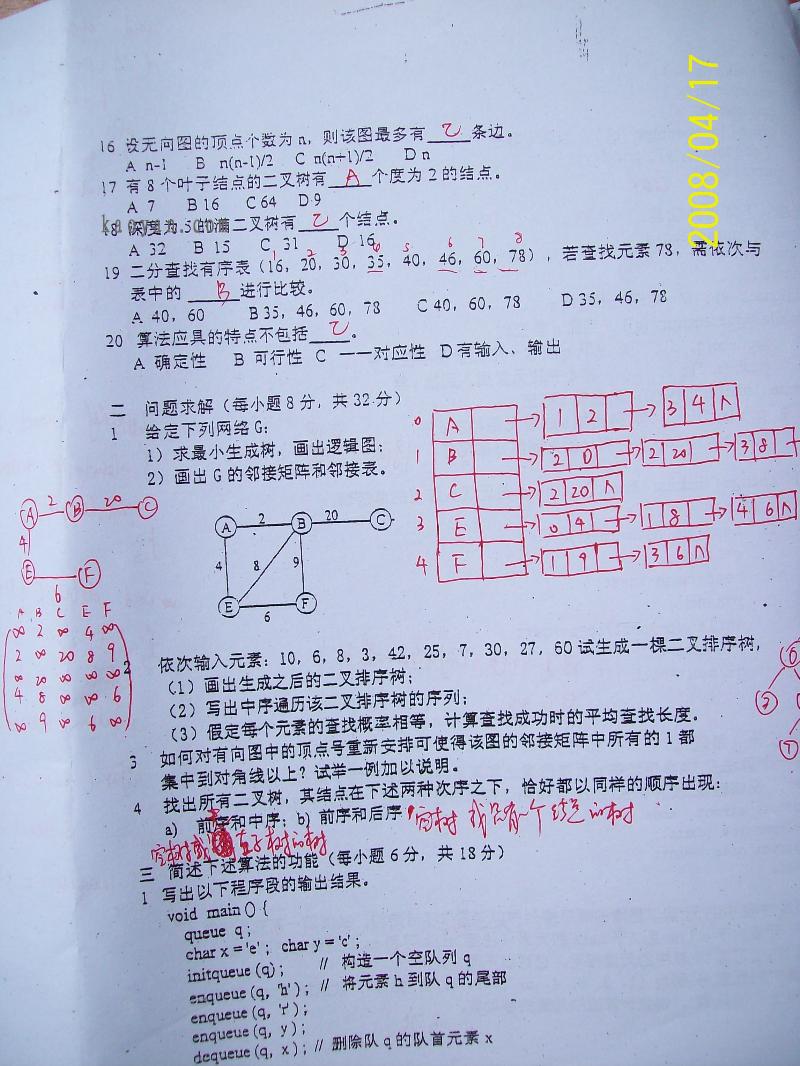 2008/04/17
16 设无向图的顶点个数为 n，则该图最多有 C 条边。
A n-1 B n(n-1)/2 C n(n+1)/2 D n
17 有 8 个叶子结点的二叉树有 A 个度为 2 的结点。
A 7 B 16 C 64 D 9
18 深度为 5 的满二叉树有 C 个结点。
A 32 B 15 C 31 D 16
1 2 3 4 5 6 7 8
19 二分查找有序表（16，20，30，35，40，46，60，78），若查找元素 78，需依次与
表中的 B 进行比较。
A 40，60 B 35，46，60，78 C 40，60，78 D 35，46，78
20 算法应具的特点不包括 C 。
A 确定性 B 可行性 C 一一对应性 D 有输入、输出
二 问题求解（每小题 8 分，共 32 分）
1 给定下列网络 G：
1）求最小生成树，画出逻辑图；
2）画出 G 的邻接矩阵和邻接表。
0 A 1 2 3 4 ∧
1 B 2 0 2 20 3 8
2 C 2 20 ∧
3 E 0 4 1 8 4 6 ∧
4 F 1 9 3 6 ∧
A 2 B 20 C
4
E 6 F
A 2 B 20 C
4 8 9
E 6 F
A B C E F
∞ 2 ∞ 4 ∞
2 ∞ 20 8 9
∞ 20 ∞ ∞ ∞
4 8 ∞ ∞ 6
∞ 9 ∞ 6 ∞
2 依次输入元素：10，6，8，3，42，25，7，30，27，60 试生成一棵二叉排序树，
（1）画出生成之后的二叉排序树；
（2）写出中序遍历该二叉排序树的序列；
（3）假定每个元素的查找概率相等，计算查找成功时的平均查找长度。
3 如何对有向图中的顶点号重新安排可使得该图的邻接矩阵中所有的 1 都
集中到对角线以上？试举一例加以说明。
4 找出所有二叉树，其结点在下述两种次序之下，恰好都以同样的顺序出现：
a) 前序和中序；b) 前序和后序
空树 或只有一个结点的树
空树或 左子树的树
三 简述下述算法的功能（每小题 6 分，共 18 分）
1 写出以下程序段的输出结果。
void main () {
queue q;
char x = 'e' ; char y = 'c' ;
initqueue (q); // 构造一个空队列 q
enqueue (q, 'h' ); // 将元素 h 到队 q 的尾部
enqueue (q, 'r' );
enqueue (q, y );
dequeue (q, x ); // 删除队 q 的队首元素 x